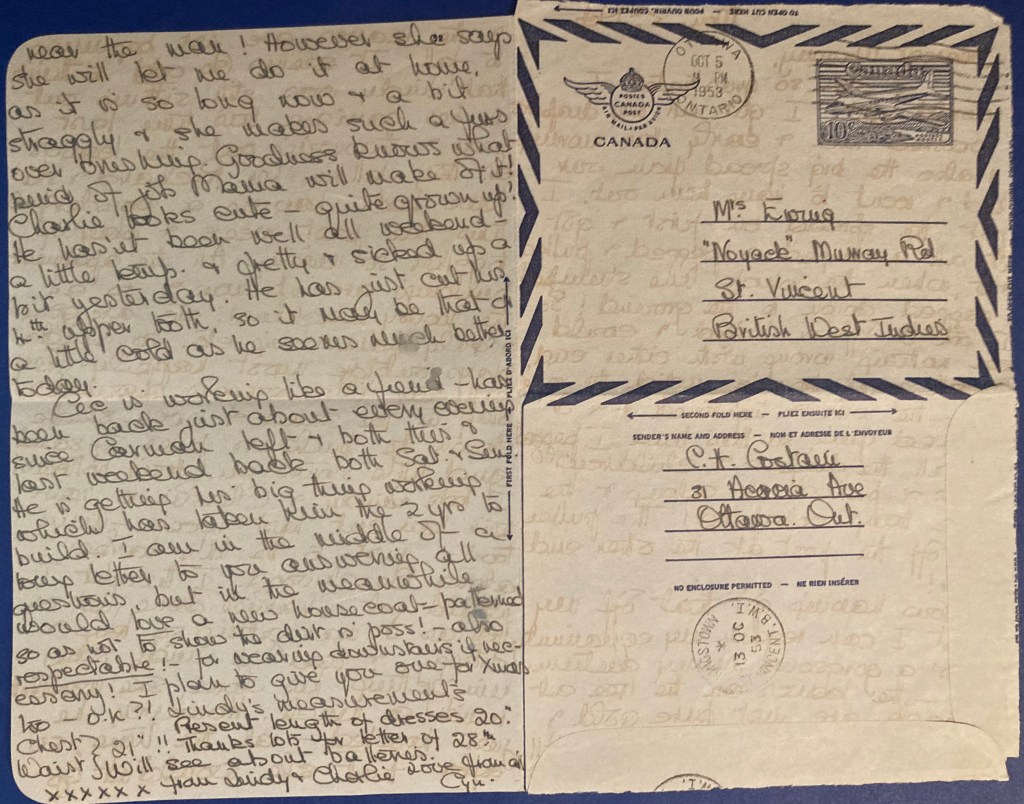 near the man! However she says
she will let me do it at home,
as it is so long now & a bit
straggly & she makes such a fuss
over brushing. Goodness knows what
kind of job Mama will make of it!
Charlie looks cute – quite grown up!
He has'nt been well all weekend –
a little temp. & fretty & sicked up a
bit yesterday. He has just cut his
4th upper tooth, so it may be that or
a little cold as he seems much better
today.
Cec is working like a fiend – has
been back just about every evening
since Carman left & both this &
last weekend back both Sat. & Sun.
He is getting his big thing working
which has taken him the 2 yrs to
build. I am in the middle of a
long letter to you answering all
questions, but in the meanwhile
would love a new housecoat – patterned
so as not to show the dirt if poss! – also
respectable! – for wearing downstairs if nec-
essary! I plan to give you one for Xmas
too O.K?! Lindy's measurements
Present length of dresses 20."
Chest } 21" !! Thanks lots for letter of 28th
Waist } Will see about batteries.
xxxxxx from Lindy & Charlie love from all
Cyn.
TO OPEN CUT HERE — POUR OUVRIR, COUPEZ ICI
OTTAWA
OCT 5
PM
1953
ONTARIO
POSTES
CANADA
POST
AIR MAIL • PAR AVION
CANADA
Canada
10c
Mrs Ewing
"Noyack" Murray Rd
St. Vincent
British West Indies
FIRST FOLD HERE — PLIEZ D'ABORD ICI
SECOND FOLD HERE — PLIEZ ENSUITE ICI
SENDER'S NAME AND ADDRESS — NOM ET ADRESSE DE L'ENVOYEUR
C.H. Costain
31 Acacia Ave
Ottawa. Ont.
NO ENCLOSURE PERMITTED — NE RIEN INSÉRER
KINGSTOWN
13 OC
53
ST. VINCENT. B.W.I.
W.I.